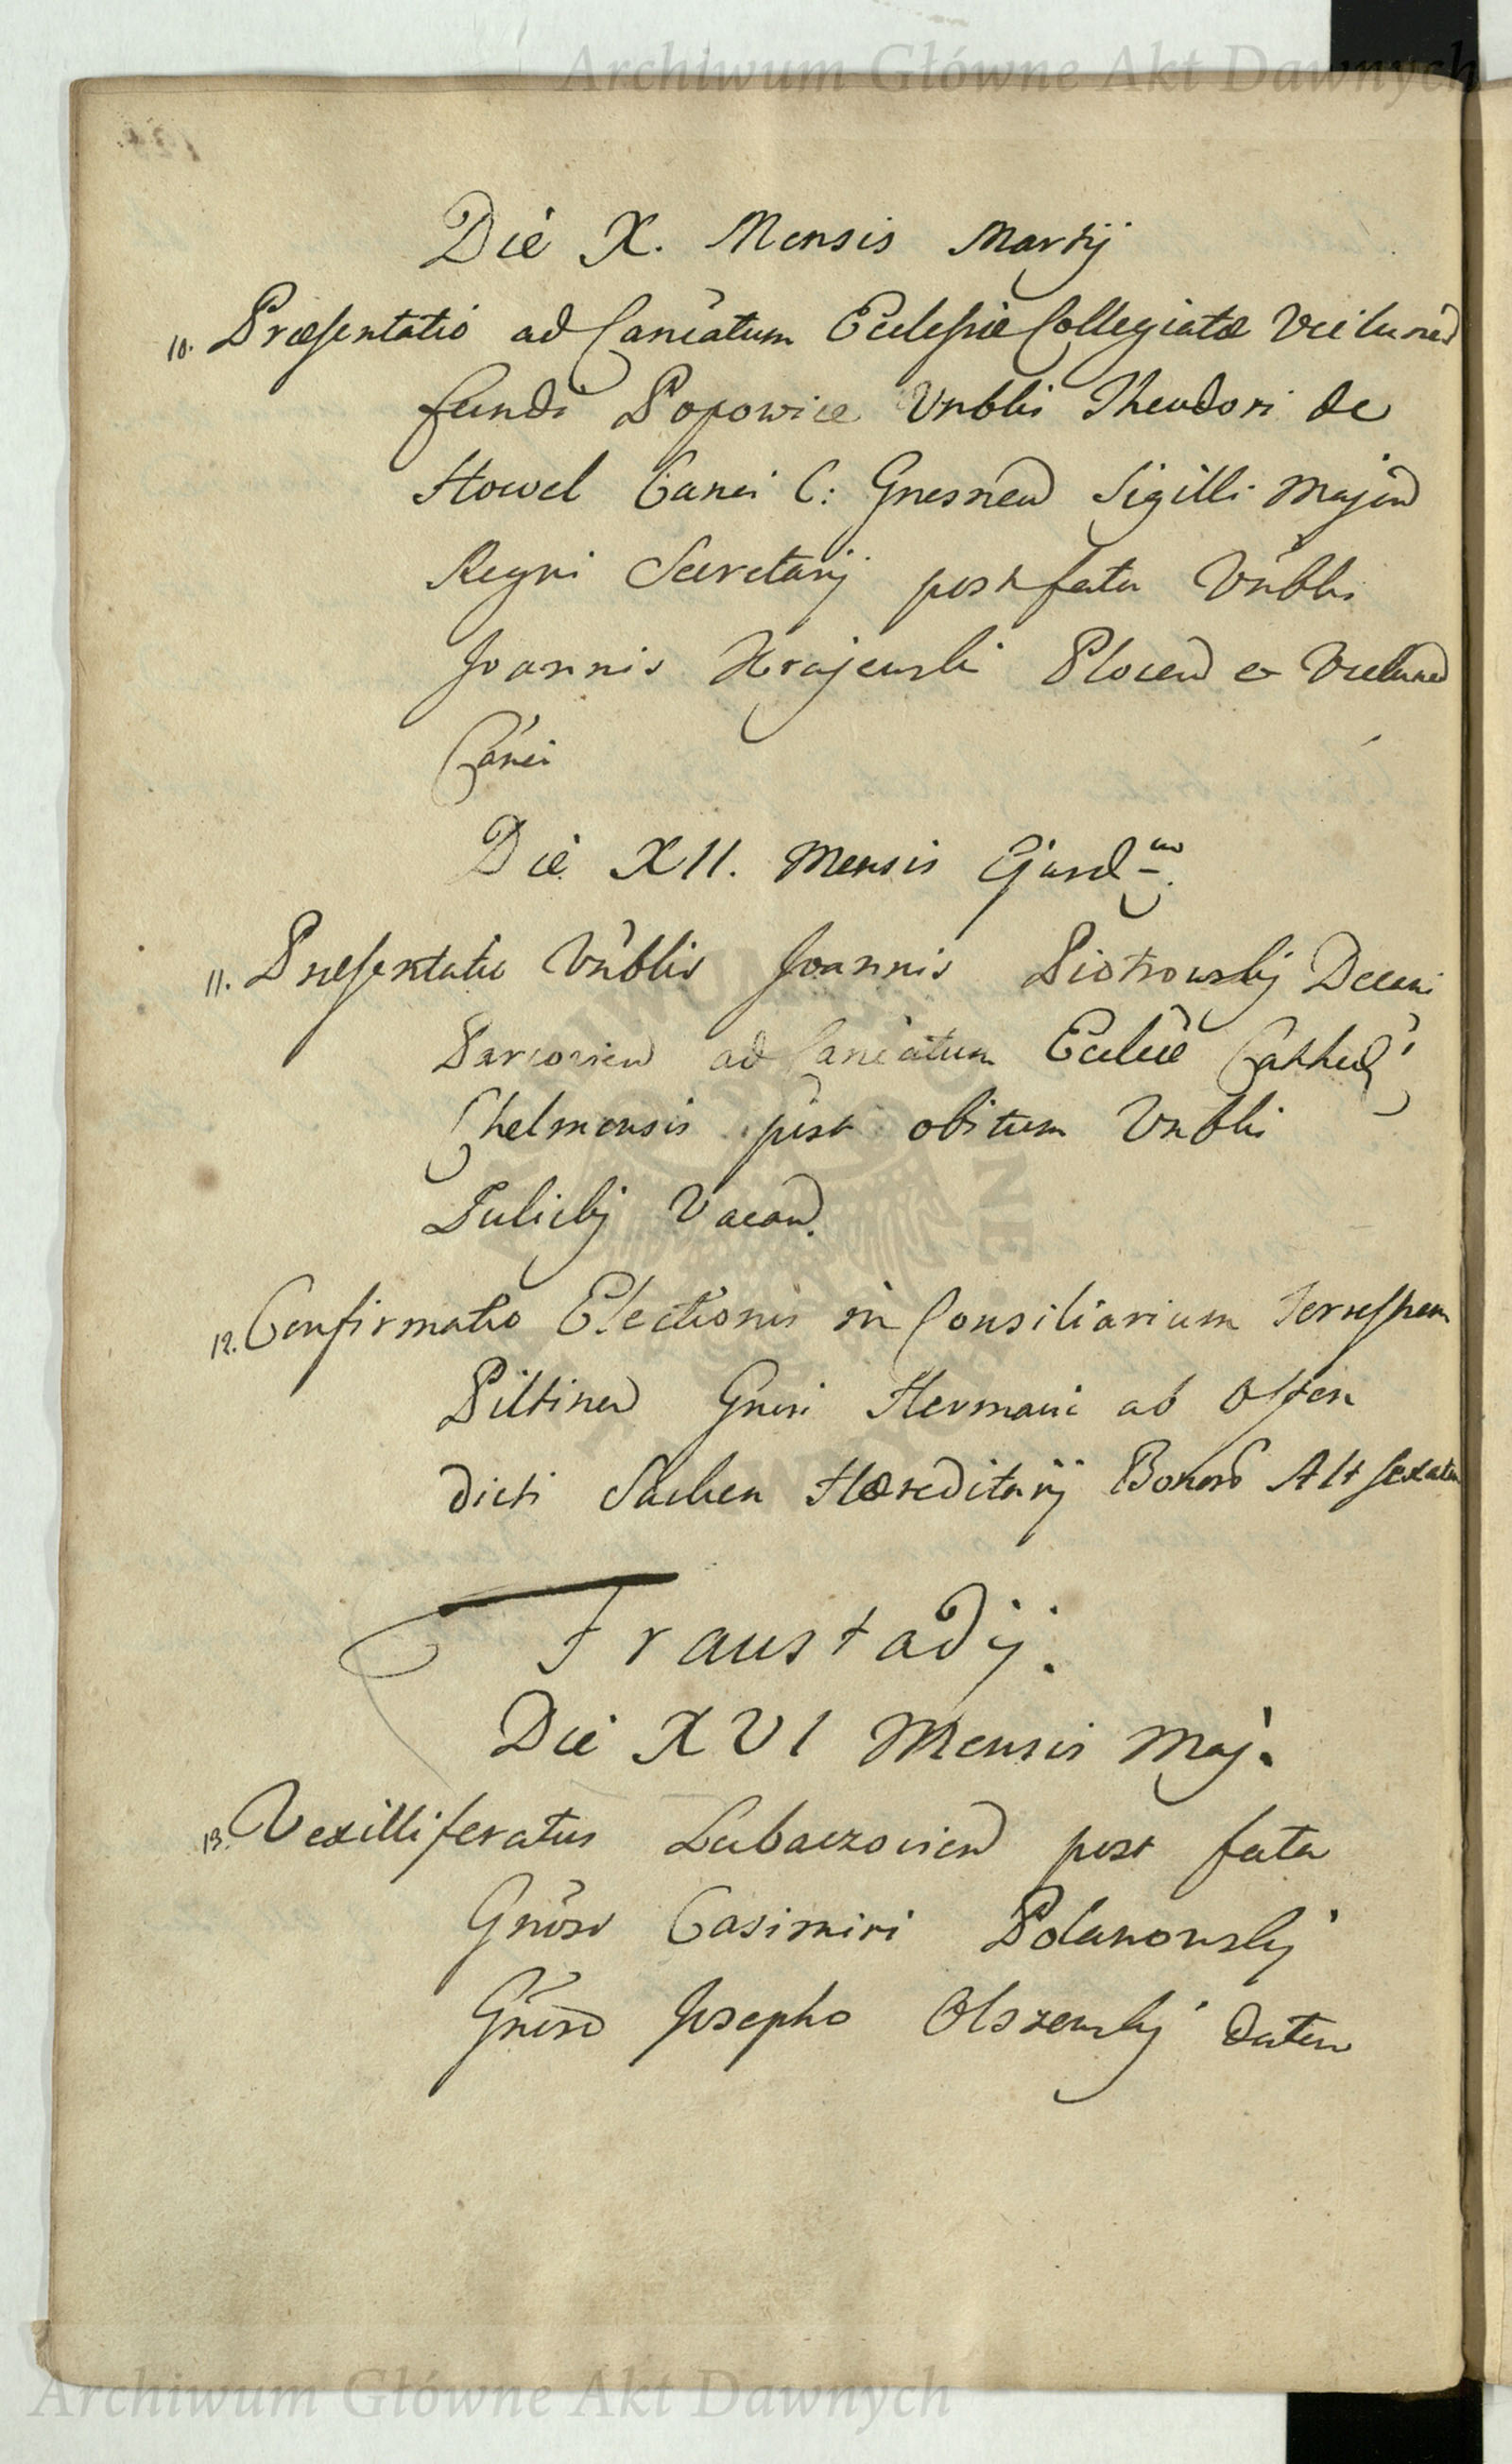 Archiwum Główne Akt Dawnych
Die X. Mensis Martij
10. Præsentatio ad Canćatum Ecclesiæ Collegiatæ Vielunen
fundi Popowice Vnblis Theodori de
Howel Canci C: Gnesnen Sigilli Major
Regni Secretarij post fata Vnblis
Joannis Krajewski Plocen et Vielunen
Canci
Die XII. Mensis Ejusd
11. Præsentatio Vnblis Joannis Piotrowskij Decani
Parcovien ad Canćatum Ecclæ Cathed
Chelmensis post obitum Vnblis
Vacan.
12. Confirmatio Electionis in Consiliarium Terrestrem
Piltinen Gnosi Hermani ab Osten
dicti Sacken Hæreditarij Bonor
Fraustadij.
Die XVI Mensis Maj.
13. Vexilliferatus Lubaczovien post fata
Gnosi Casimiri Polanowskij
Gnoso Josepho Olszewskij datus
Archiwum Główne Akt Dawnych